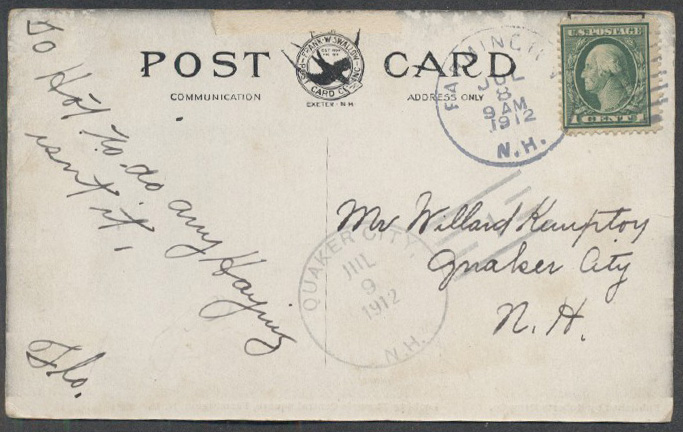 POST CARD
COMMUNICATION
ADDRESS ONLY
FRANK W. SWALLOW
POST CARD CO. INC.
EXETER-N-H
FARMINGTON
JUL
8
9 AM
1912
N.H.
U.S. POSTAGE
1 CENT
To Hot to do any Haying
isnt it,
Flo.
Mr Willard Kempton
Quaker City
N.H.
QUAKER CITY,
JUL
9
1912
N.H.